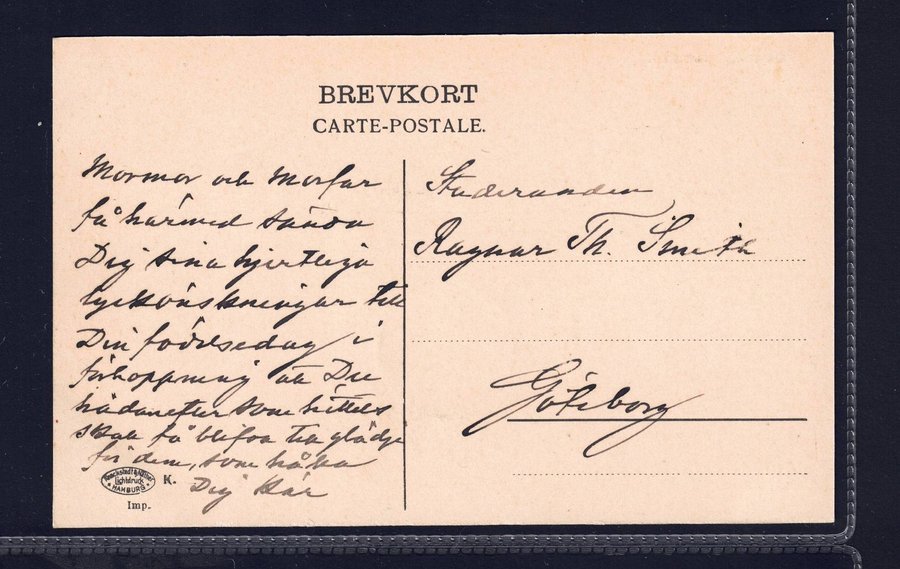 BREVKORT
CARTE-POSTALE.
Mormor och Morfar
få härmed sända
Dig sina hjertliga
lyckönskningar till
Din födelsedag i
förhoppning att Du
hädanefter som hittills
skall få blifva till glädje
för dem, som hålla
Dig kär
Studeranden
Ragnar Th. Smith
Göteborg
Knackstedt & Näther
Lichtdruck
HAMBURG
K.
Imp.